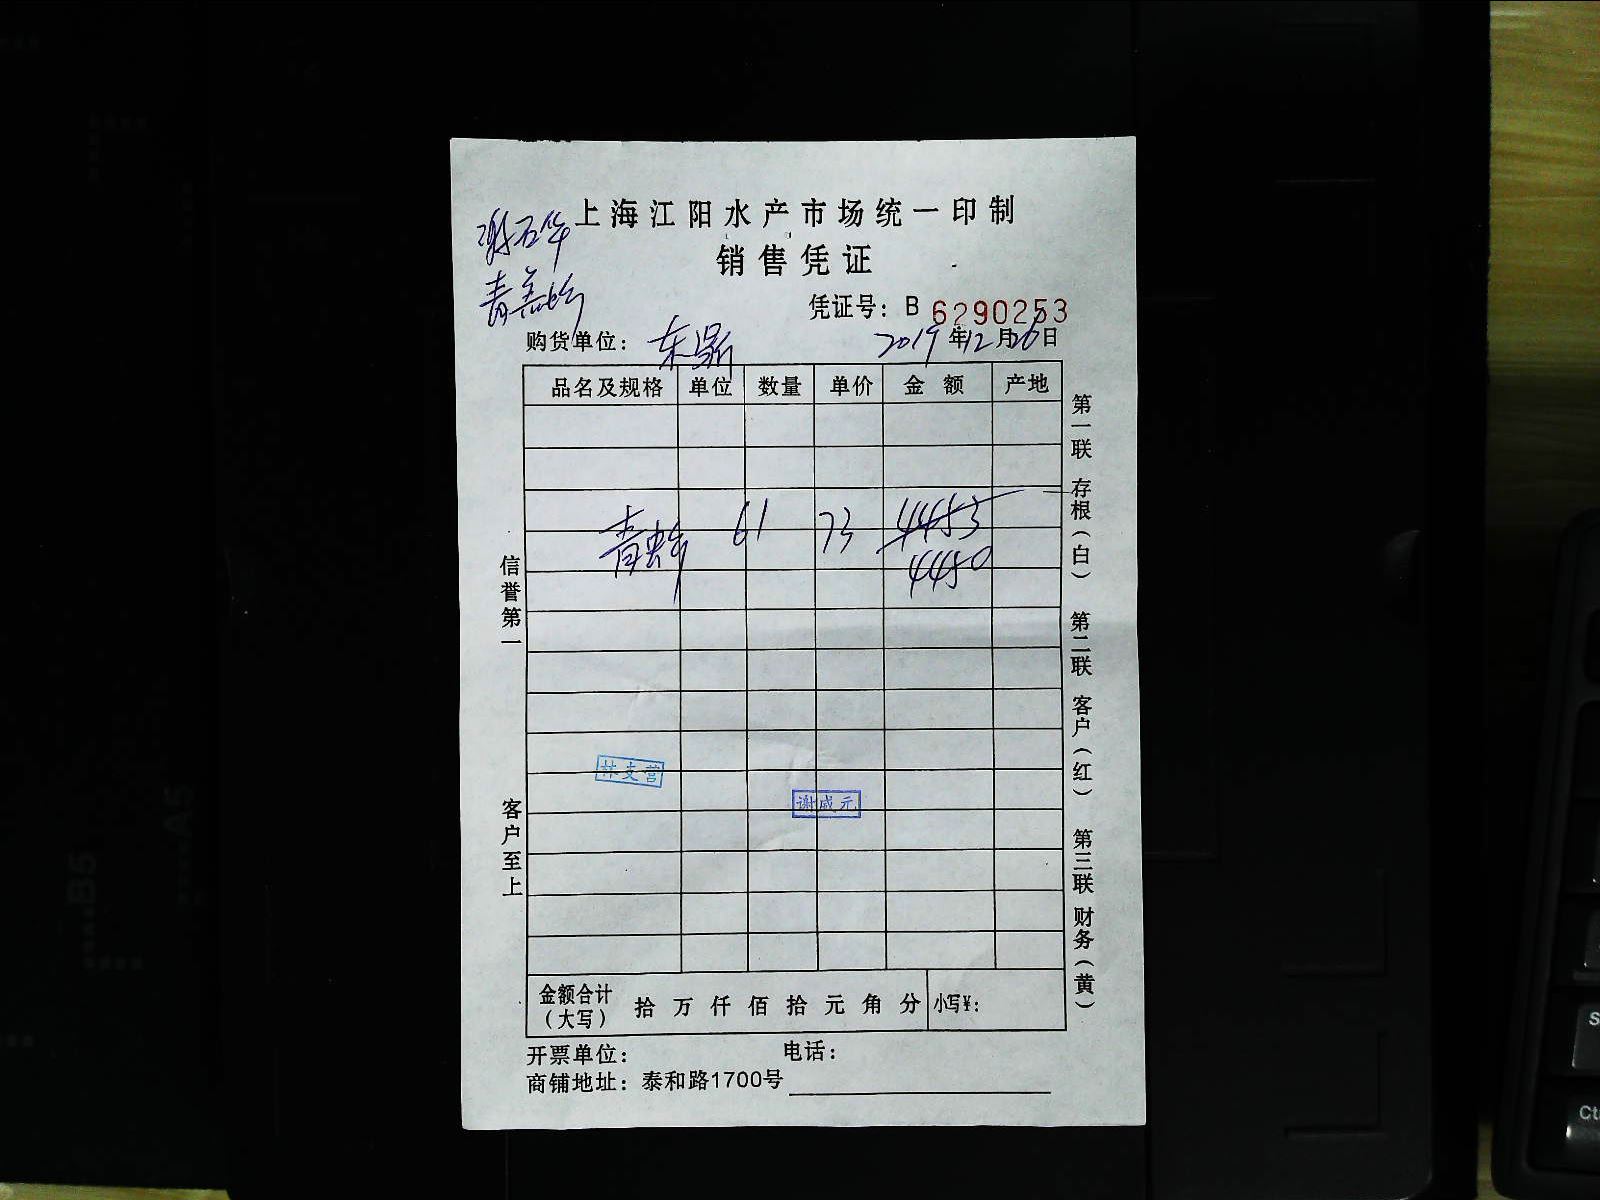 上海江阳水产市场统一印制
销售凭证
谢石华
凭证号：B 6290253
购货单位：东鼎 2019年12月26日
品名及规格 单位 数量 单价 金 额 产地
青虾 61 73 4453
4450
林支营
谢成元
金额合计（大写） 拾 万 仟 佰 拾 元 角 分 小写¥：
开票单位： 电话：
商铺地址：泰和路1700号
信誉第一
客户至上
第一联 存根（白） 第二联 客户（红） 第三联 财务（黄）
B5
A5